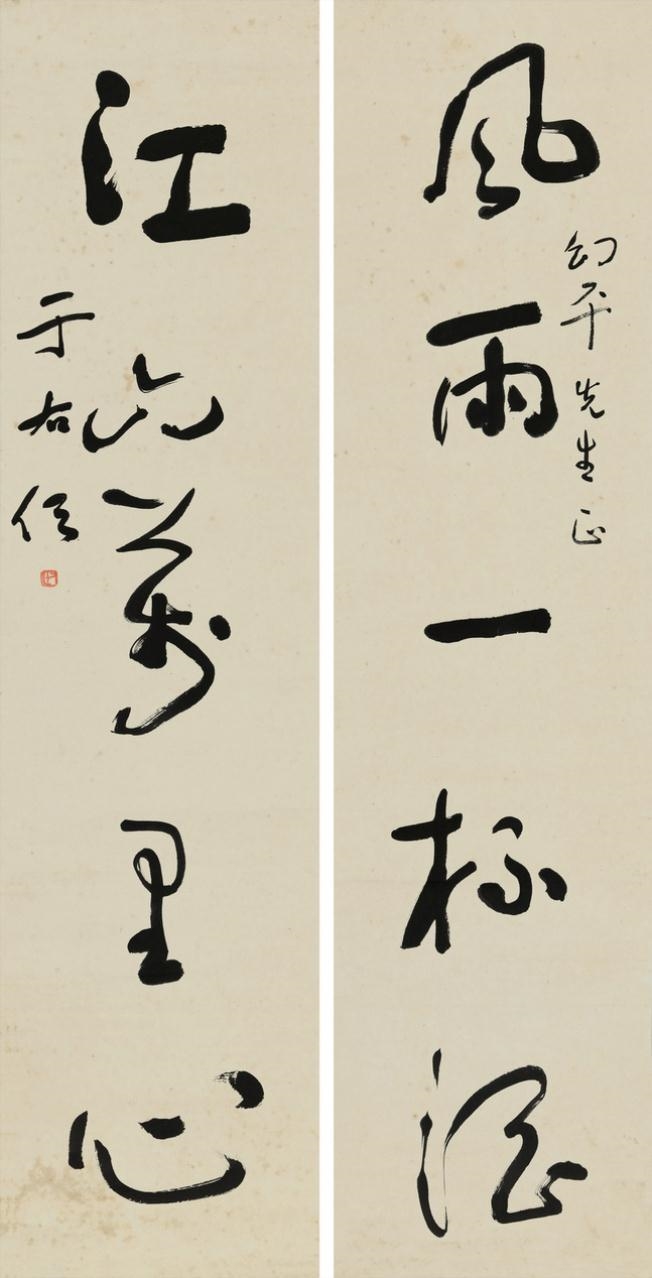 風雨一杯酒
幻平先生正
江山萬里心
于右任